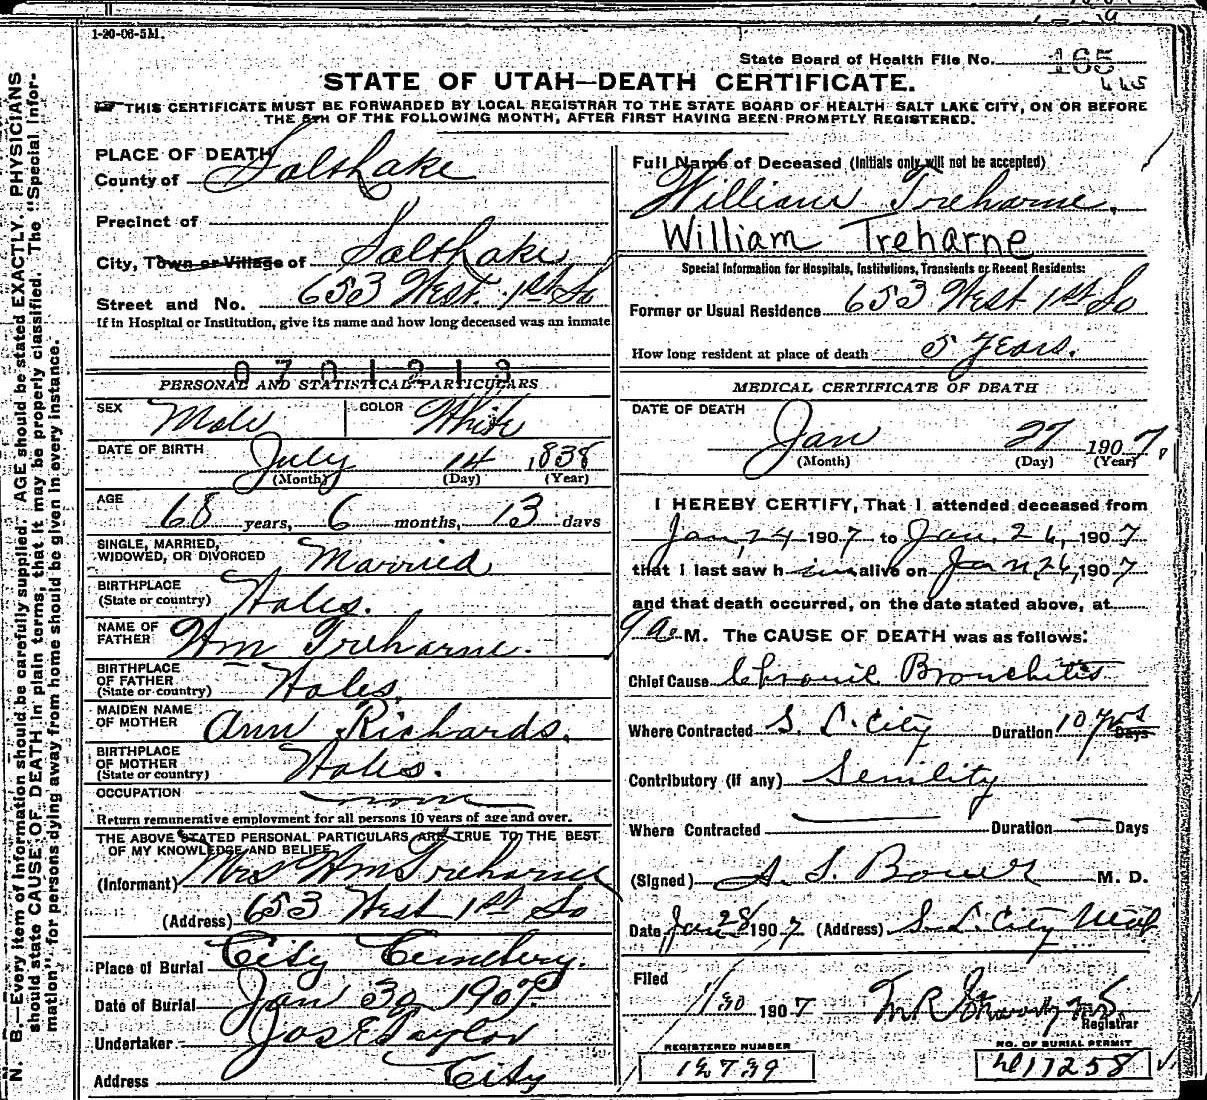 1-20-06-5M.
State Board of Health File No. 165
STATE OF UTAH—DEATH CERTIFICATE.
THIS CERTIFICATE MUST BE FORWARDED BY LOCAL REGISTRAR TO THE STATE BOARD OF HEALTH SALT LAKE CITY, ON OR BEFORE
THE 5TH OF THE FOLLOWING MONTH, AFTER FIRST HAVING BEEN PROMPTLY REGISTERED.
N. B.—Every item of information should be carefully supplied. AGE should be stated EXACTLY. PHYSICIANS
should state CAUSE OF DEATH in plain terms, that it may be properly classified. The "Special Infor-
mation" for persons dying away from home should be given in every instance.
PLACE OF DEATH
County of Salt Lake
Precinct of
City, Town or Village of Salt Lake
Street and No. 653 West 1st So
If in Hospital or Institution, give its name and how long deceased was an inmate
0701213
PERSONAL AND STATISTICAL PARTICULARS
SEX Male COLOR White
DATE OF BIRTH July 14 1838
(Month) (Day) (Year)
AGE 68 years, 6 months, 13 days
SINGLE, MARRIED,
WIDOWED, OR DIVORCED Married
BIRTHPLACE
(State or country) Wales.
NAME OF
FATHER Wm Treharne.
BIRTHPLACE
OF FATHER
(State or country) Wales
MAIDEN NAME
OF MOTHER Ann Richards.
BIRTHPLACE
OF MOTHER
(State or country) Wales.
OCCUPATION
Return remunerative employment for all persons 10 years of age and over.
THE ABOVE STATED PERSONAL PARTICULARS ARE TRUE TO THE BEST
OF MY KNOWLEDGE AND BELIEF
(Informant) Mrs Wm Treharne
(Address) 653 West 1st So
Place of Burial City Cemetery.
Date of Burial Jan 30 1907
Undertaker Jos E Taylor
Address City
Full Name of Deceased (Initials only will not be accepted)
William Treharne.
William Treharne
Special Information for Hospitals, Institutions, Transients or Recent Residents:
Former or Usual Residence 653 West 1st So
How long resident at place of death 5 Years.
MEDICAL CERTIFICATE OF DEATH
DATE OF DEATH
Jan 27 1907.
(Month) (Day) (Year)
I HEREBY CERTIFY, That I attended deceased from
Jan, 24 1907 to Jan. 26, 1907
that I last saw him alive on Jan, 26, 1907
and that death occurred, on the date stated above, at
9 a. M. The CAUSE OF DEATH was as follows:
Chief Cause Chronic Bronchitis
Where Contracted S. L. City Duration 10 yrs Days
Contributory (if any) Senility
Where Contracted Duration Days
(Signed) A. S. Bower M. D.
Date Jan 28 1907 (Address) S. L. City Utah
Filed
1/30 1907
Registrar
REGISTERED NUMBER
NO. OF BURIAL PERMIT
17258